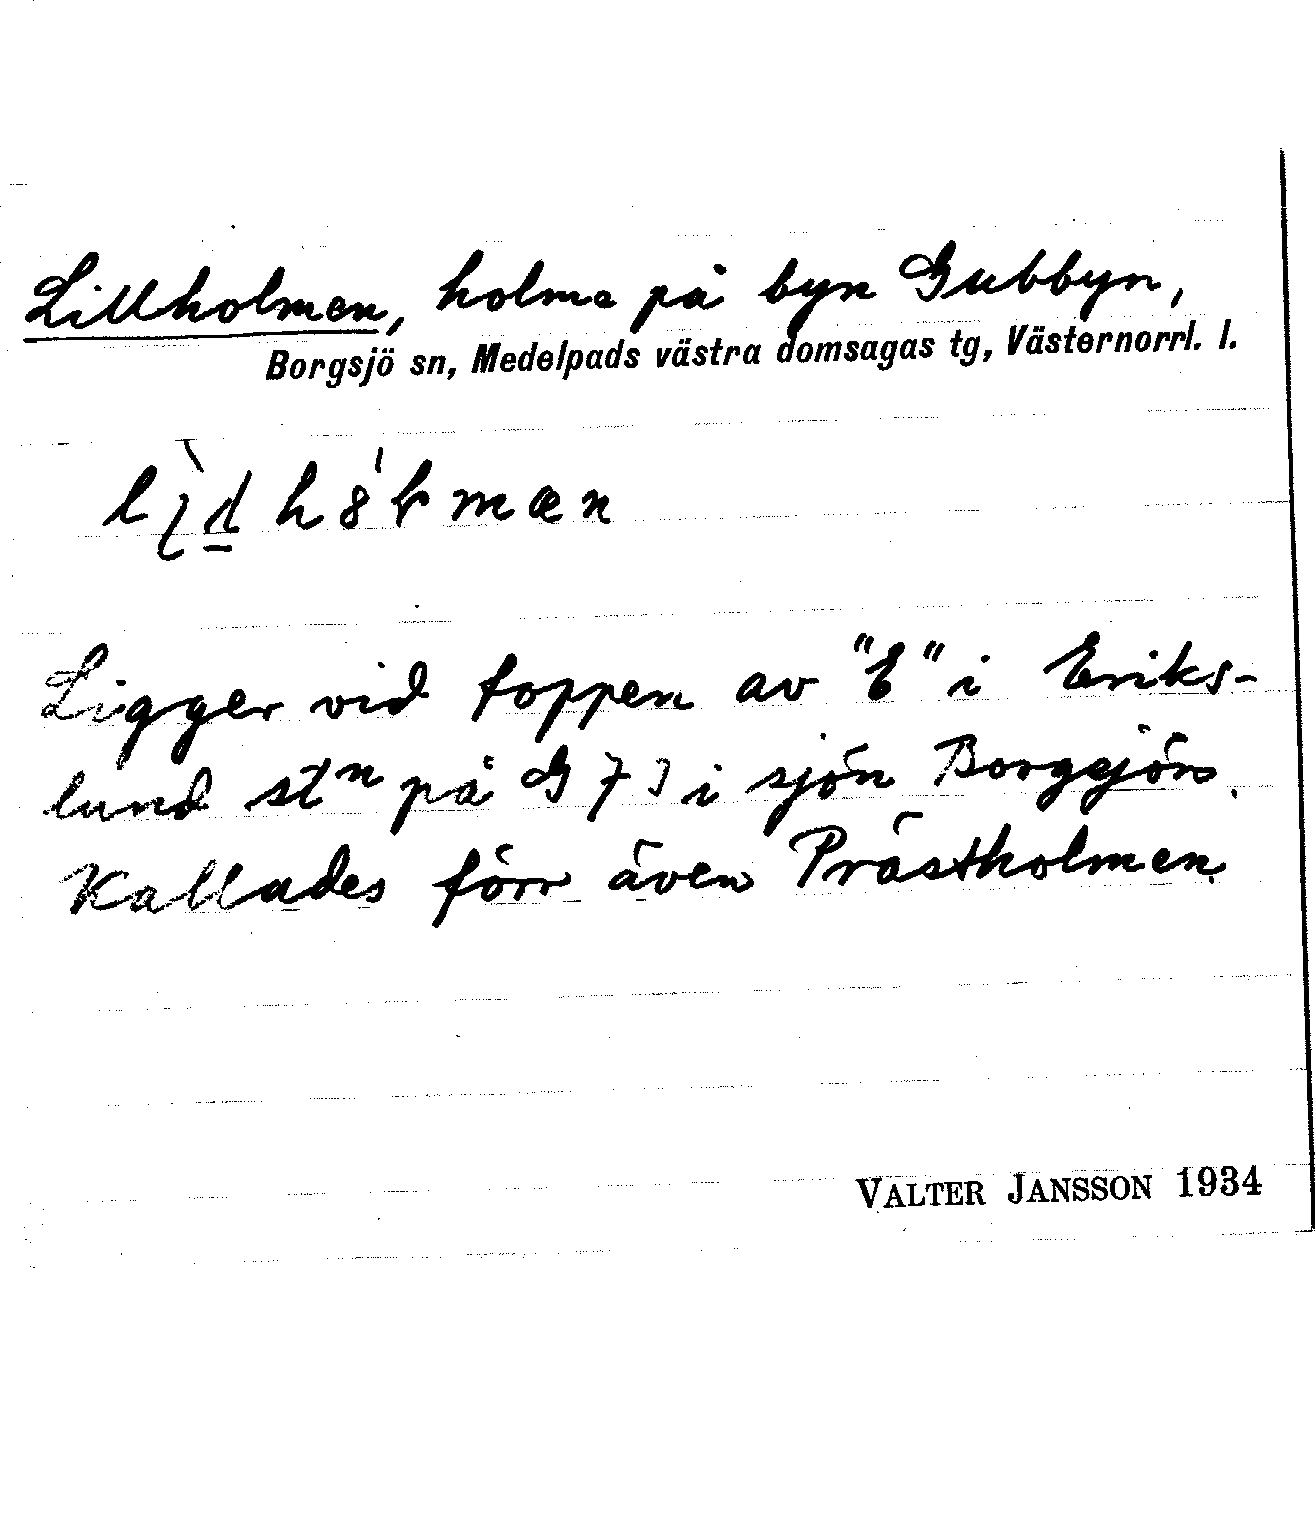 Lillholmen, holme på byn Gubbyn,
Borgsjö sn, Medelpads västra domsagas tg, Västernorrl. l.
Ligger vid toppen av "E" i Eriks-
lund stⁿ på G 73 i sjön Borgsjön.
Kallades förr även Prästholmen.
VALTER JANSSON 1934